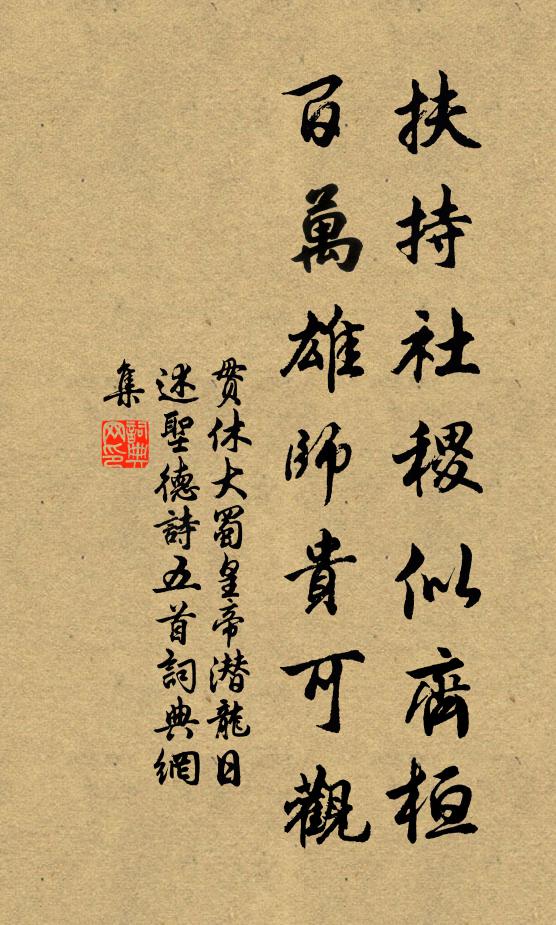 扶持社稷似齊桓
百萬雄師貴可觀
貫休大蜀皇帝潛龍日
述聖德詩五首詞典網
集
詞典
網印